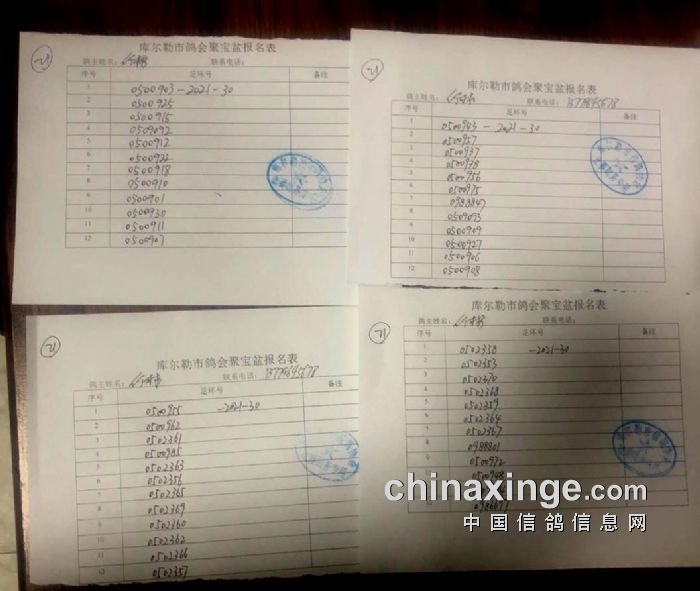 21
库尔勒市鸽会聚宝盆报名表
鸽主姓名： 联系电话：
序号 足环号 备注
1 0500903-2021-30
2 0500925
3 0500915
4 0509092
5 0500912
6 0500922
7 0500918
8 0500910
9 0500901
10 0500930
11 0500911
12 0500907
21
库尔勒市鸽会聚宝盆报名表
鸽主姓名： 联系电话：
序号 足环号 备注
1 0500943-2021-30
2 0500957
3 0500937
4 0500938
5 0500956
6 0500975
7 0988847
8 0509093
9 0500909
10 0500927
11 0500906
12 0500908
21
库尔勒市鸽会聚宝盆报名表
鸽主姓名： 联系电话：
序号 足环号 备注
1 0500955 -2021-30
2 0500962
3 0502361
4 0500985
5 0502363
6 0502356
7 0502365
8 0502369
9 0502360
10 0502362
11 0502366
12 0502357
21
库尔勒市鸽会聚宝盆报名表
鸽主姓名： 联系电话：
序号 足环号 备注
1 0502358 -2021-30
2 0502353
3 0502370
4 0502368
5 0502359
6 0502364
7 0502367
8 0988801
9 0500972
0500948
chinaxinge.com
中国信鸽信息网